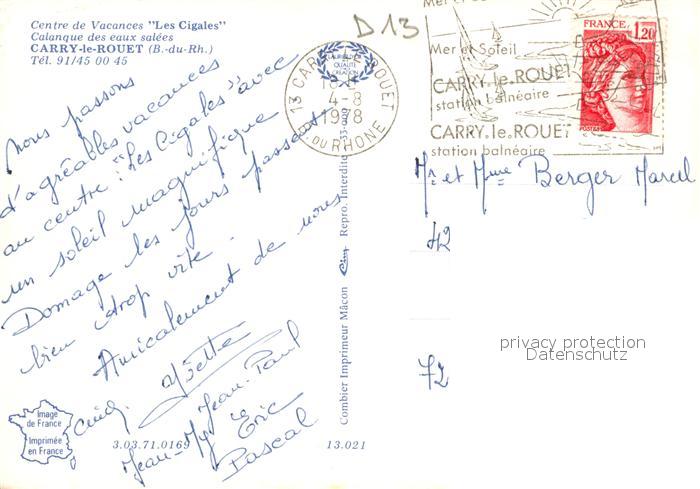 Centre de Vacances "Les Cigales"
Calanque des eaux salées
CARRY-le-ROUET (B.-du-Rh.)
Tél. 91/45 00 45
D13
nous passons
d'agréables vacances
au centre "Les Cigales" avec
un soleil magnifique
Domage les jours passent
bien trop vite.
Amicalement de nous
Yvette
Jean-Paul
Jean-My
Eric
Pascal
Image de France
Imprimée en France
3.03.71.0169
13.021
Combier Imprimeur Mâcon Cim Repro. Interdite
LABEL QUALITÉ CRÉATION
13 CARRY LE ROUET
4-8
1978
B. DU RHONE
Mer et Soleil
Mer et Soleil
CARRY.le.ROUET
station balnéaire
CARRY.le.ROUET
station balnéaire
FRANCE
1,20
POSTES
Mr et Mme Berger Marcel
42
72
privacy protection
Datenschutz